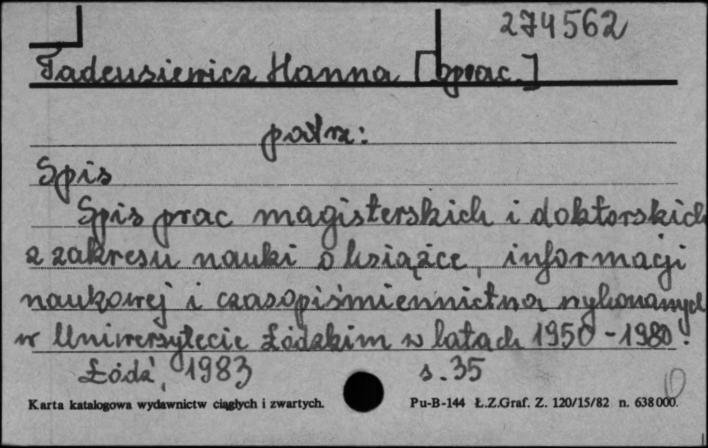 274562
Tadeusiewicz Hanna [oprac.]
patrz:
Spis
Spis prac magisterskich i doktorskich
z zakresu nauki o książce, informacji
naukowej i czasopiśmiennictwa wykonanych
w Uniwersytecie Łódzkim w latach 1950-1980.
Łódź, 1983 s. 35
Karta katalogowa wydawnictw ciągłych i zwartych. Pu-B-144 Ł.Z.Graf. Z. 120/15/82 n. 638000.